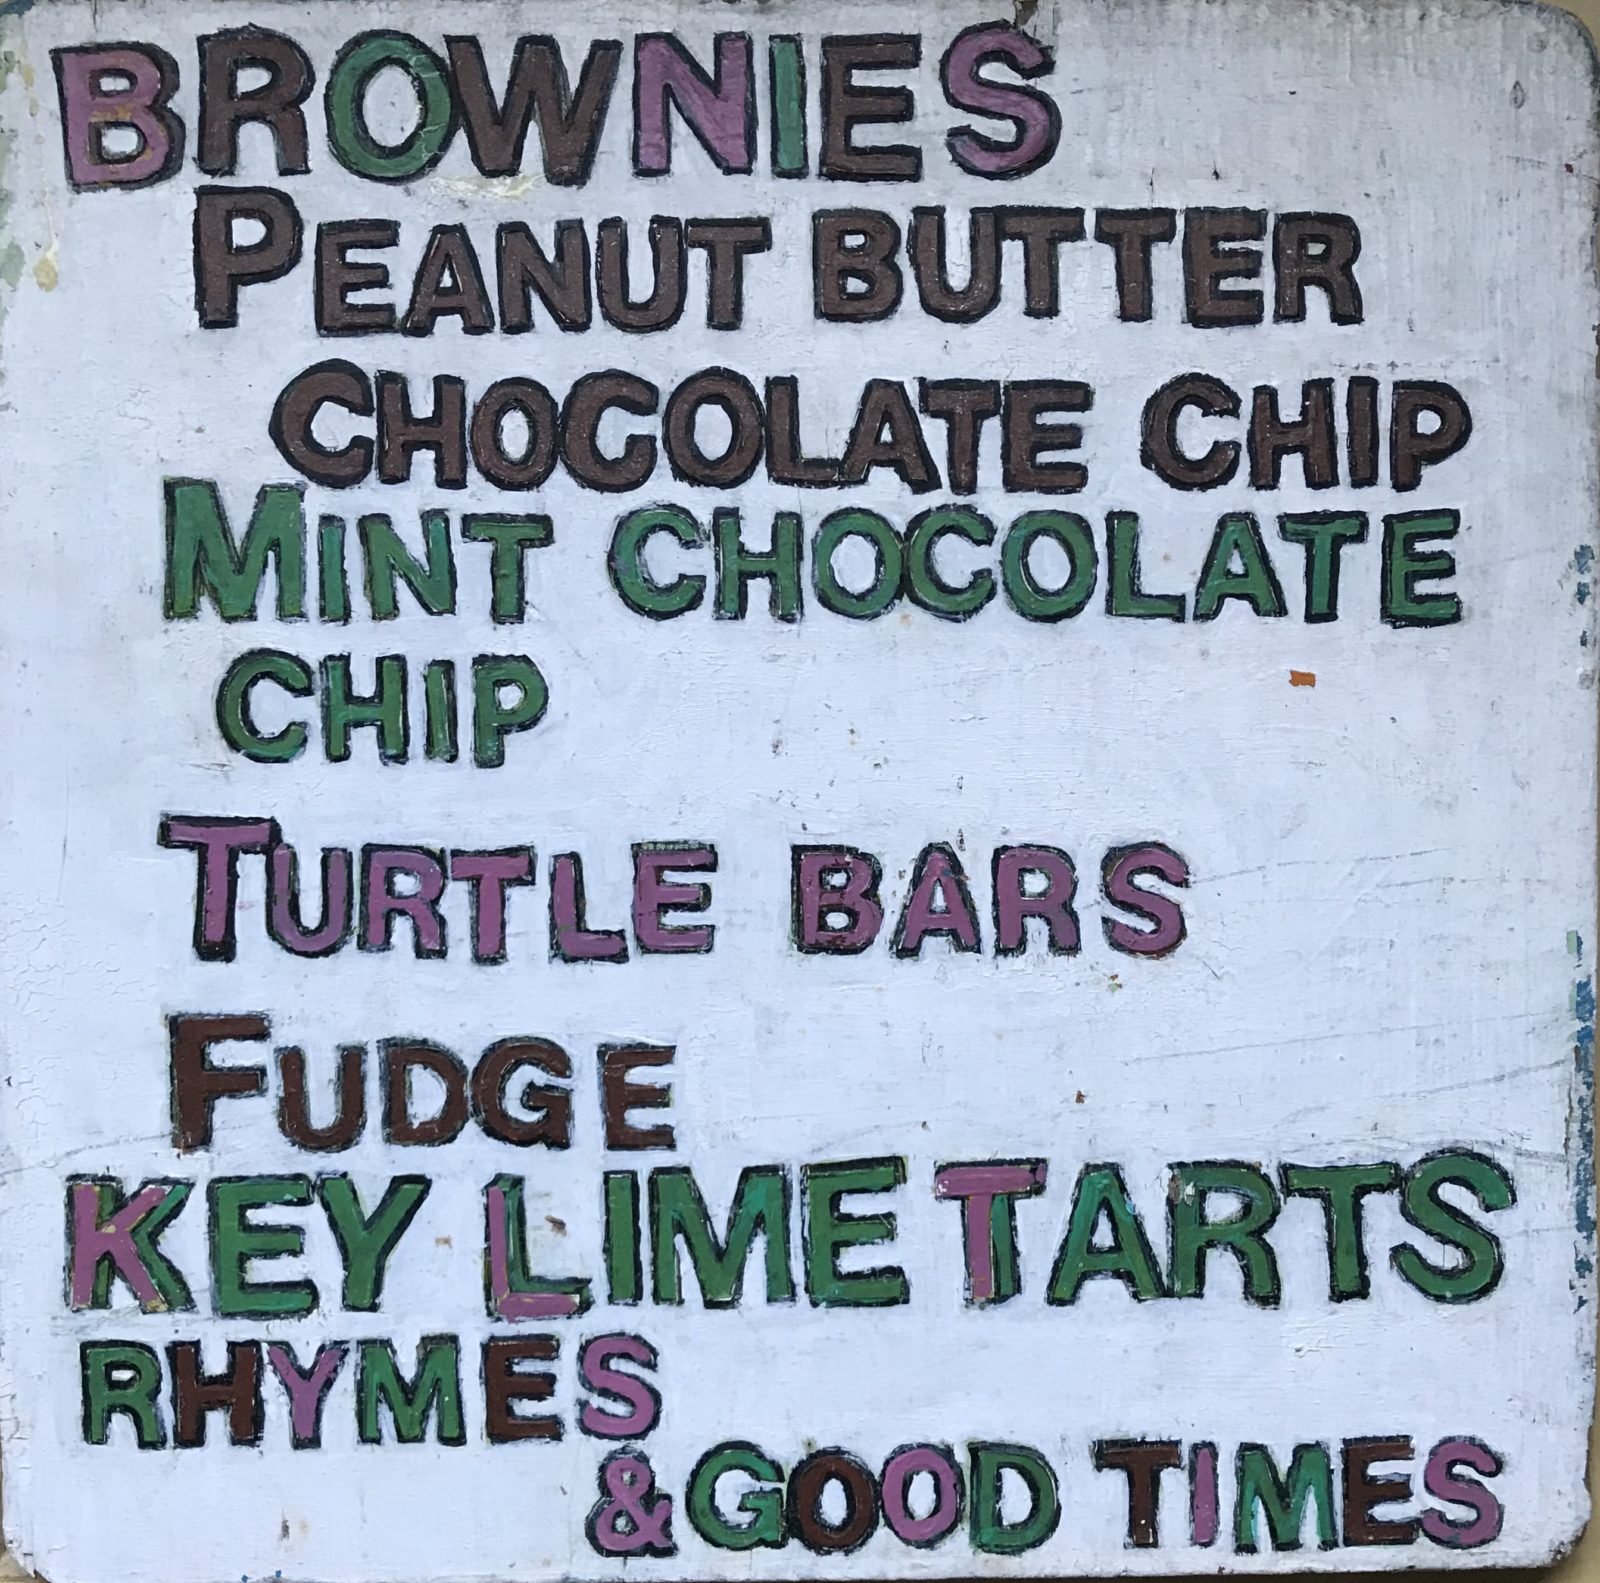 BROWNIES
PEANUT BUTTER
CHOCOLATE CHIP
MINT CHOCOLATE
CHIP
TURTLE BARS
FUDGE
KEY LIME TARTS
RHYMES
& GOOD TIMES